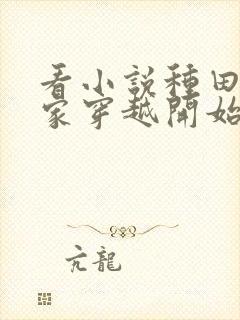 看小說種田
家穿越開始
亢龍